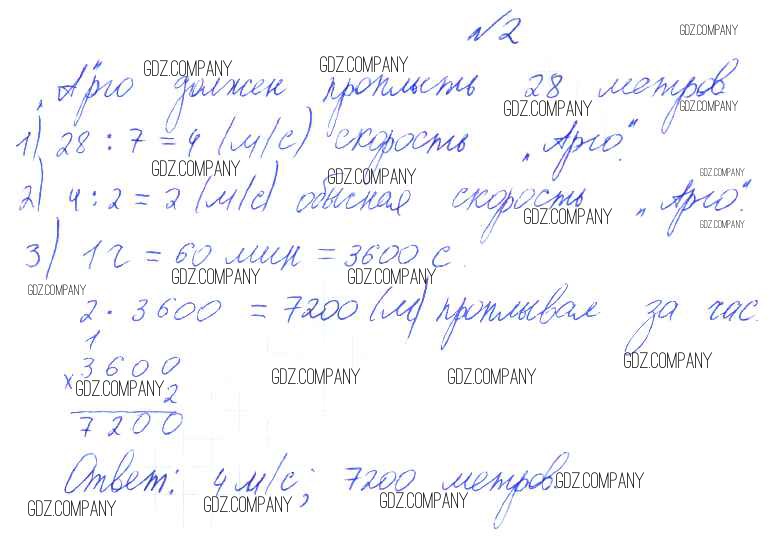 №2 GDZ.COMPANY
GDZ.COMPANY GDZ.COMPANY
„Арго" должен проплыть 28 метров
GDZ.COMPANY GDZ.COMPANY
1) 28 : 7 = 4 (м/с) скорость „Арго".
GDZ.COMPANY GDZ.COMPANY GDZ.COMPANY
2) 4 : 2 = 2 (м/с) обычная скорость „Арго".
GDZ.COMPANY GDZ.COMPANY
3) 1 г = 60 мин = 3600 с.
GDZ.COMPANY GDZ.COMPANY GDZ.COMPANY
2 · 3600 = 7200 (м) проплывал за час.
1
3600
GDZ.COMPANY GDZ.COMPANY GDZ.COMPANY
× GDZ.COMPANY 2
7200
Ответ: 4 м/с; 7200 метров. GDZ.COMPANY
GDZ.COMPANY GDZ.COMPANY GDZ.COMPANY